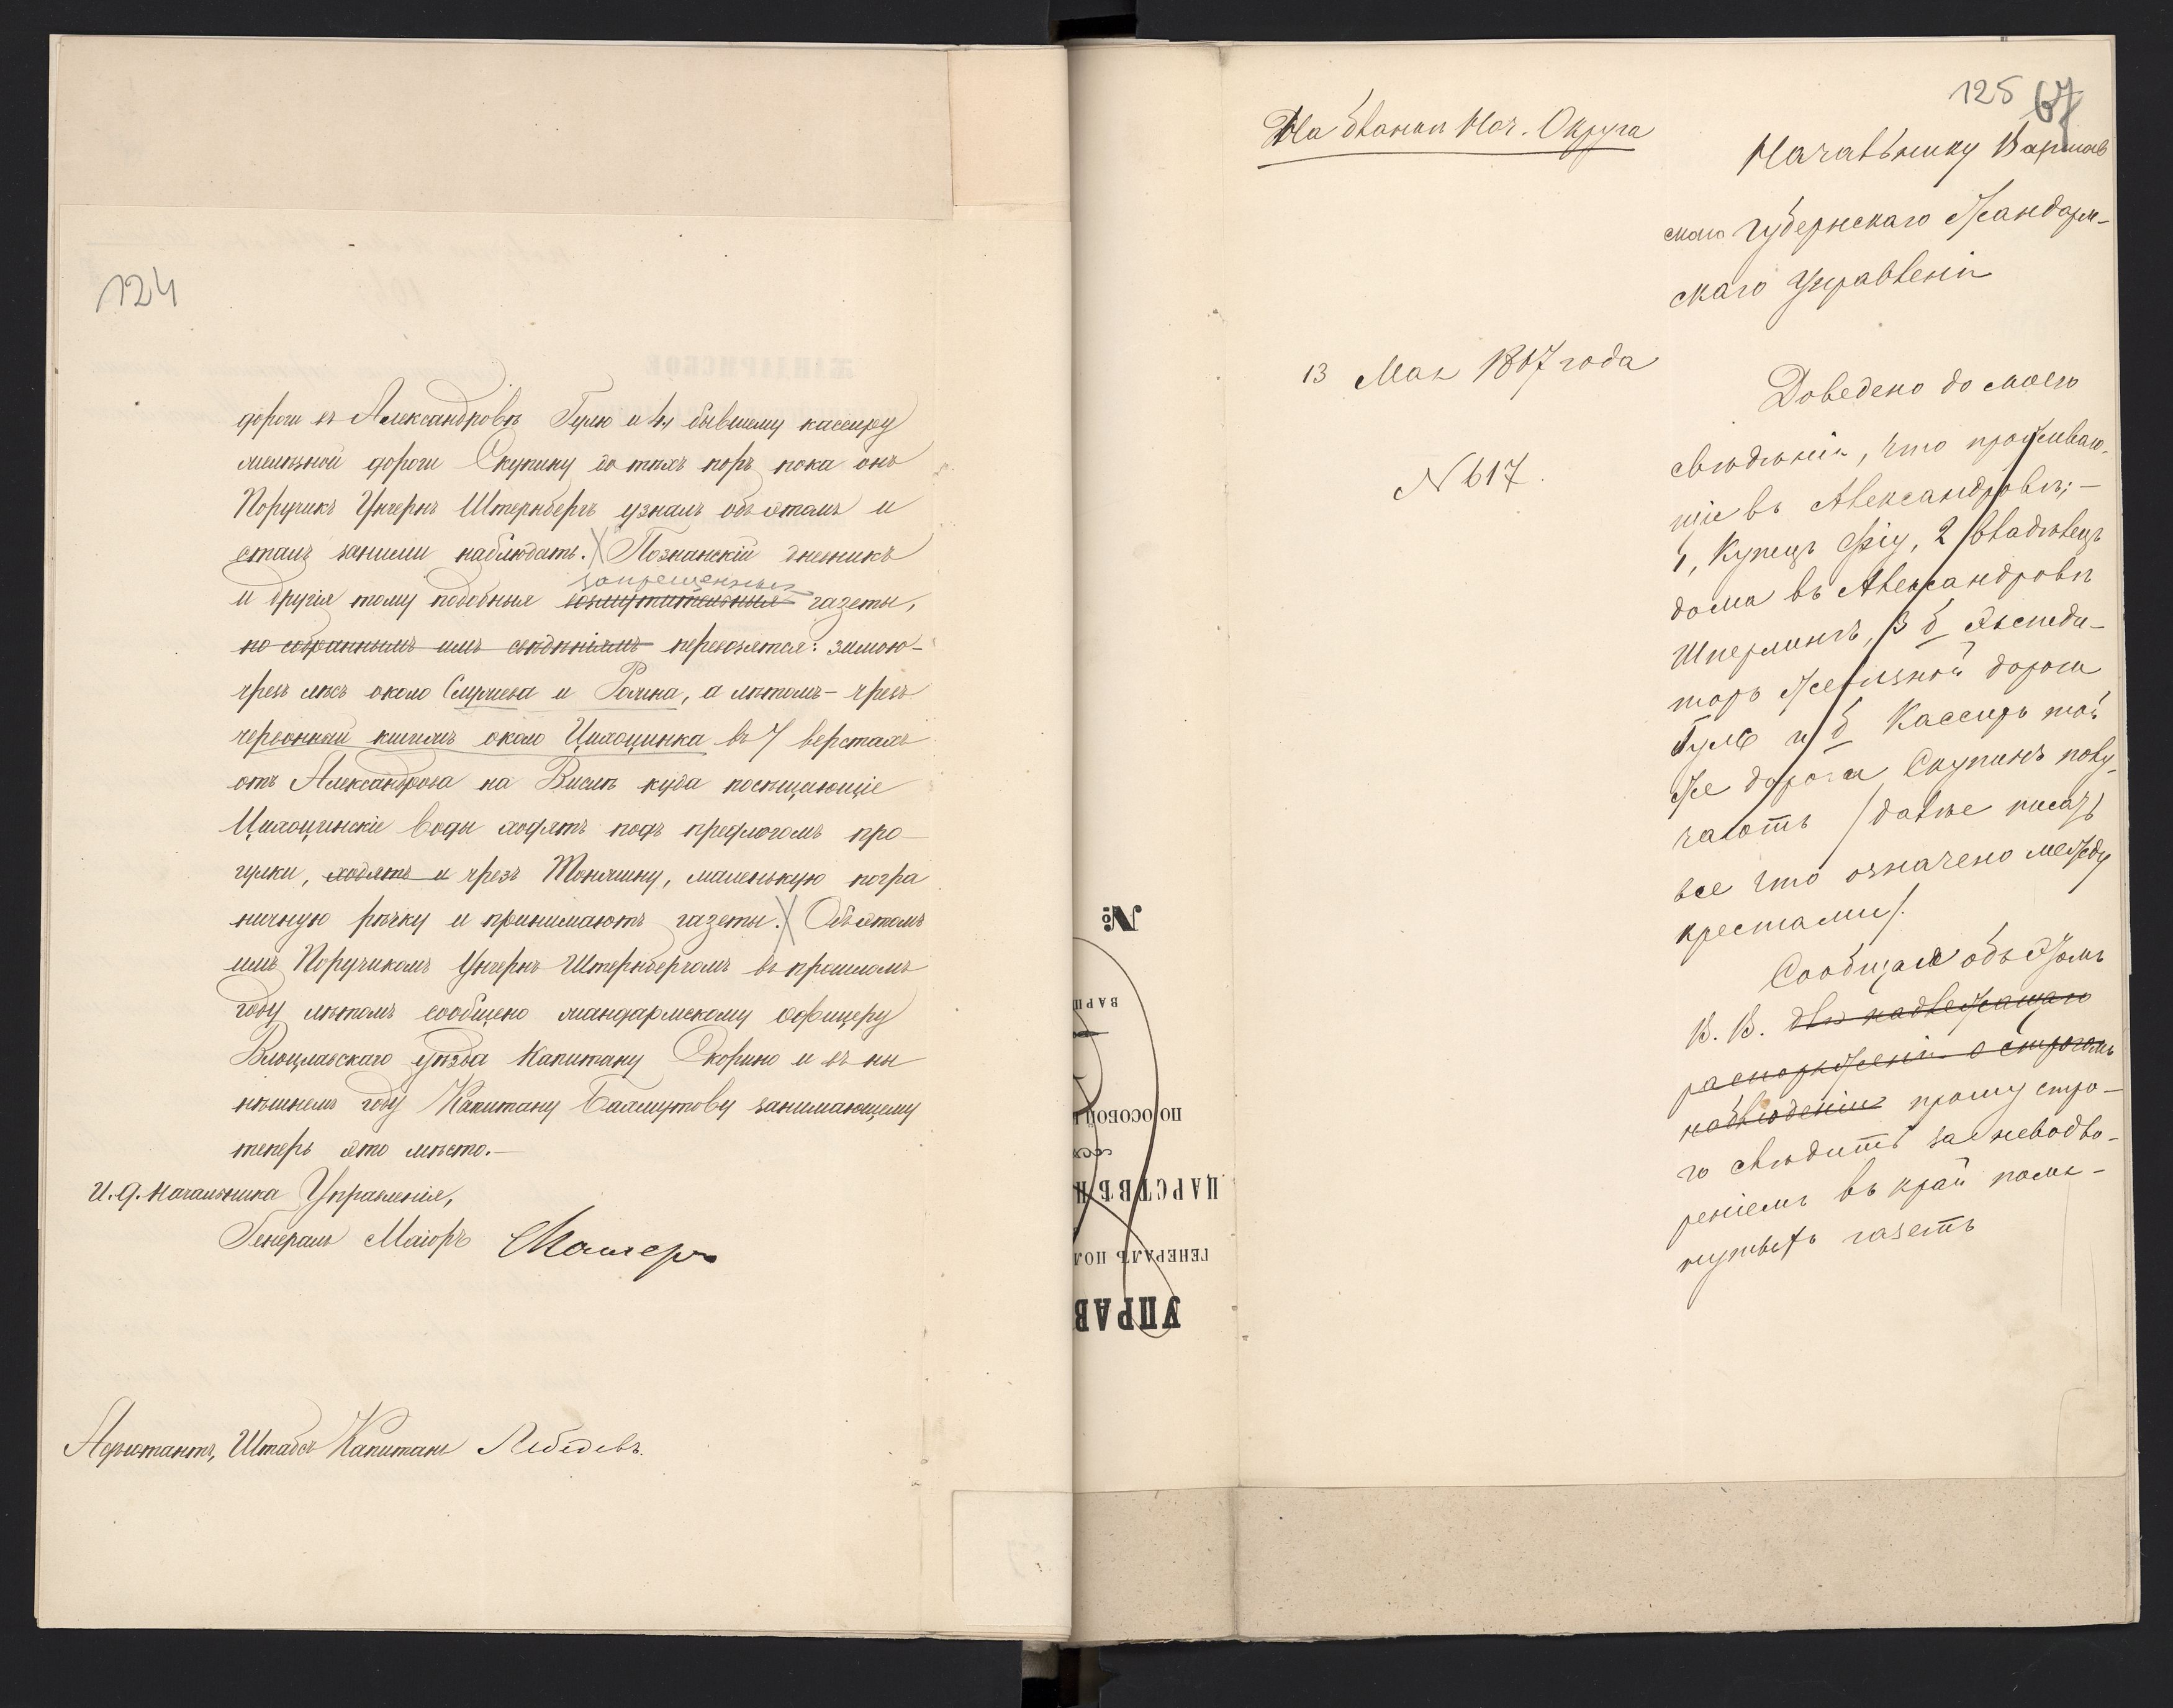 124
дороги въ Александровѣ Гулю и 4, бывшему кассиру
желѣзной дороги Скупину до тѣхъ поръ пока онъ
Поручикъ Унгернъ Штернбергъ узналъ объ этомъ и
сталъ за ними наблюдать. Познанскій дневникъ
запрещенныя
и другія тому подобныя возмутительныя газеты,
по собраннымъ имъ свѣдѣніямъ перевозятся: зимою-
чрезъ лѣсъ около Служева и Рожна, а лѣтомъ - чрезъ
около Цихоцинка въ 7 верстахъ
отъ Александрова на Вислѣ куда посѣщающіе
Цихоцинскіе воды ходятъ подъ предлогомъ про-
гулки, ходятъ и чрезъ Тонжину, маленькую погра
ничную рѣчку и принимаютъ газеты. Объ этомъ
имъ Поручикомъ Унгернъ Штернбергомъ въ прошломъ
году лѣтомъ сообщено жандармскому офицеру
Влоцлавскаго уѣзда Капитану Скорино и въ ны
нѣшнемъ году Капитану Балмутову занимающему
теперь это мѣсто.-
И. Д. Начальника Управленія,
Генералъ Маіоръ
Адъютантъ, Штабсъ Капитанъ Лебедевъ.
№
ВАРШ
ПО ОСОБОЙ
ЦАРСТВѢ П
ГЕНЕРАЛЪ ПОЛ
УПРАВ
125 67
На бланкѣ Нач. Округа
Начальнику Варшав
скаго Губернскаго Жандарм-
скаго Управленія
13 Мая 1867 года
№ 617.
Доведено до моего
свѣдѣнія, что проживаю-
щіе въ Александровѣ; -
1, Купецъ 2 владѣлецъ
дома въ Александровѣ
Шперлингъ, 3 б Экспеди-
торъ Желѣзной дороги
Гуль и б Кассиръ той
же дороги Скупинъ полу-
чаютъ /далѣе писать
все что означено между
крестами/.
Сообщая объ этомъ
В. В. для надлежащаго
распоряженія о строгомъ
наблюденіи прошу стро-
го слѣдить за неводво-
реніемъ въ край
газетъ